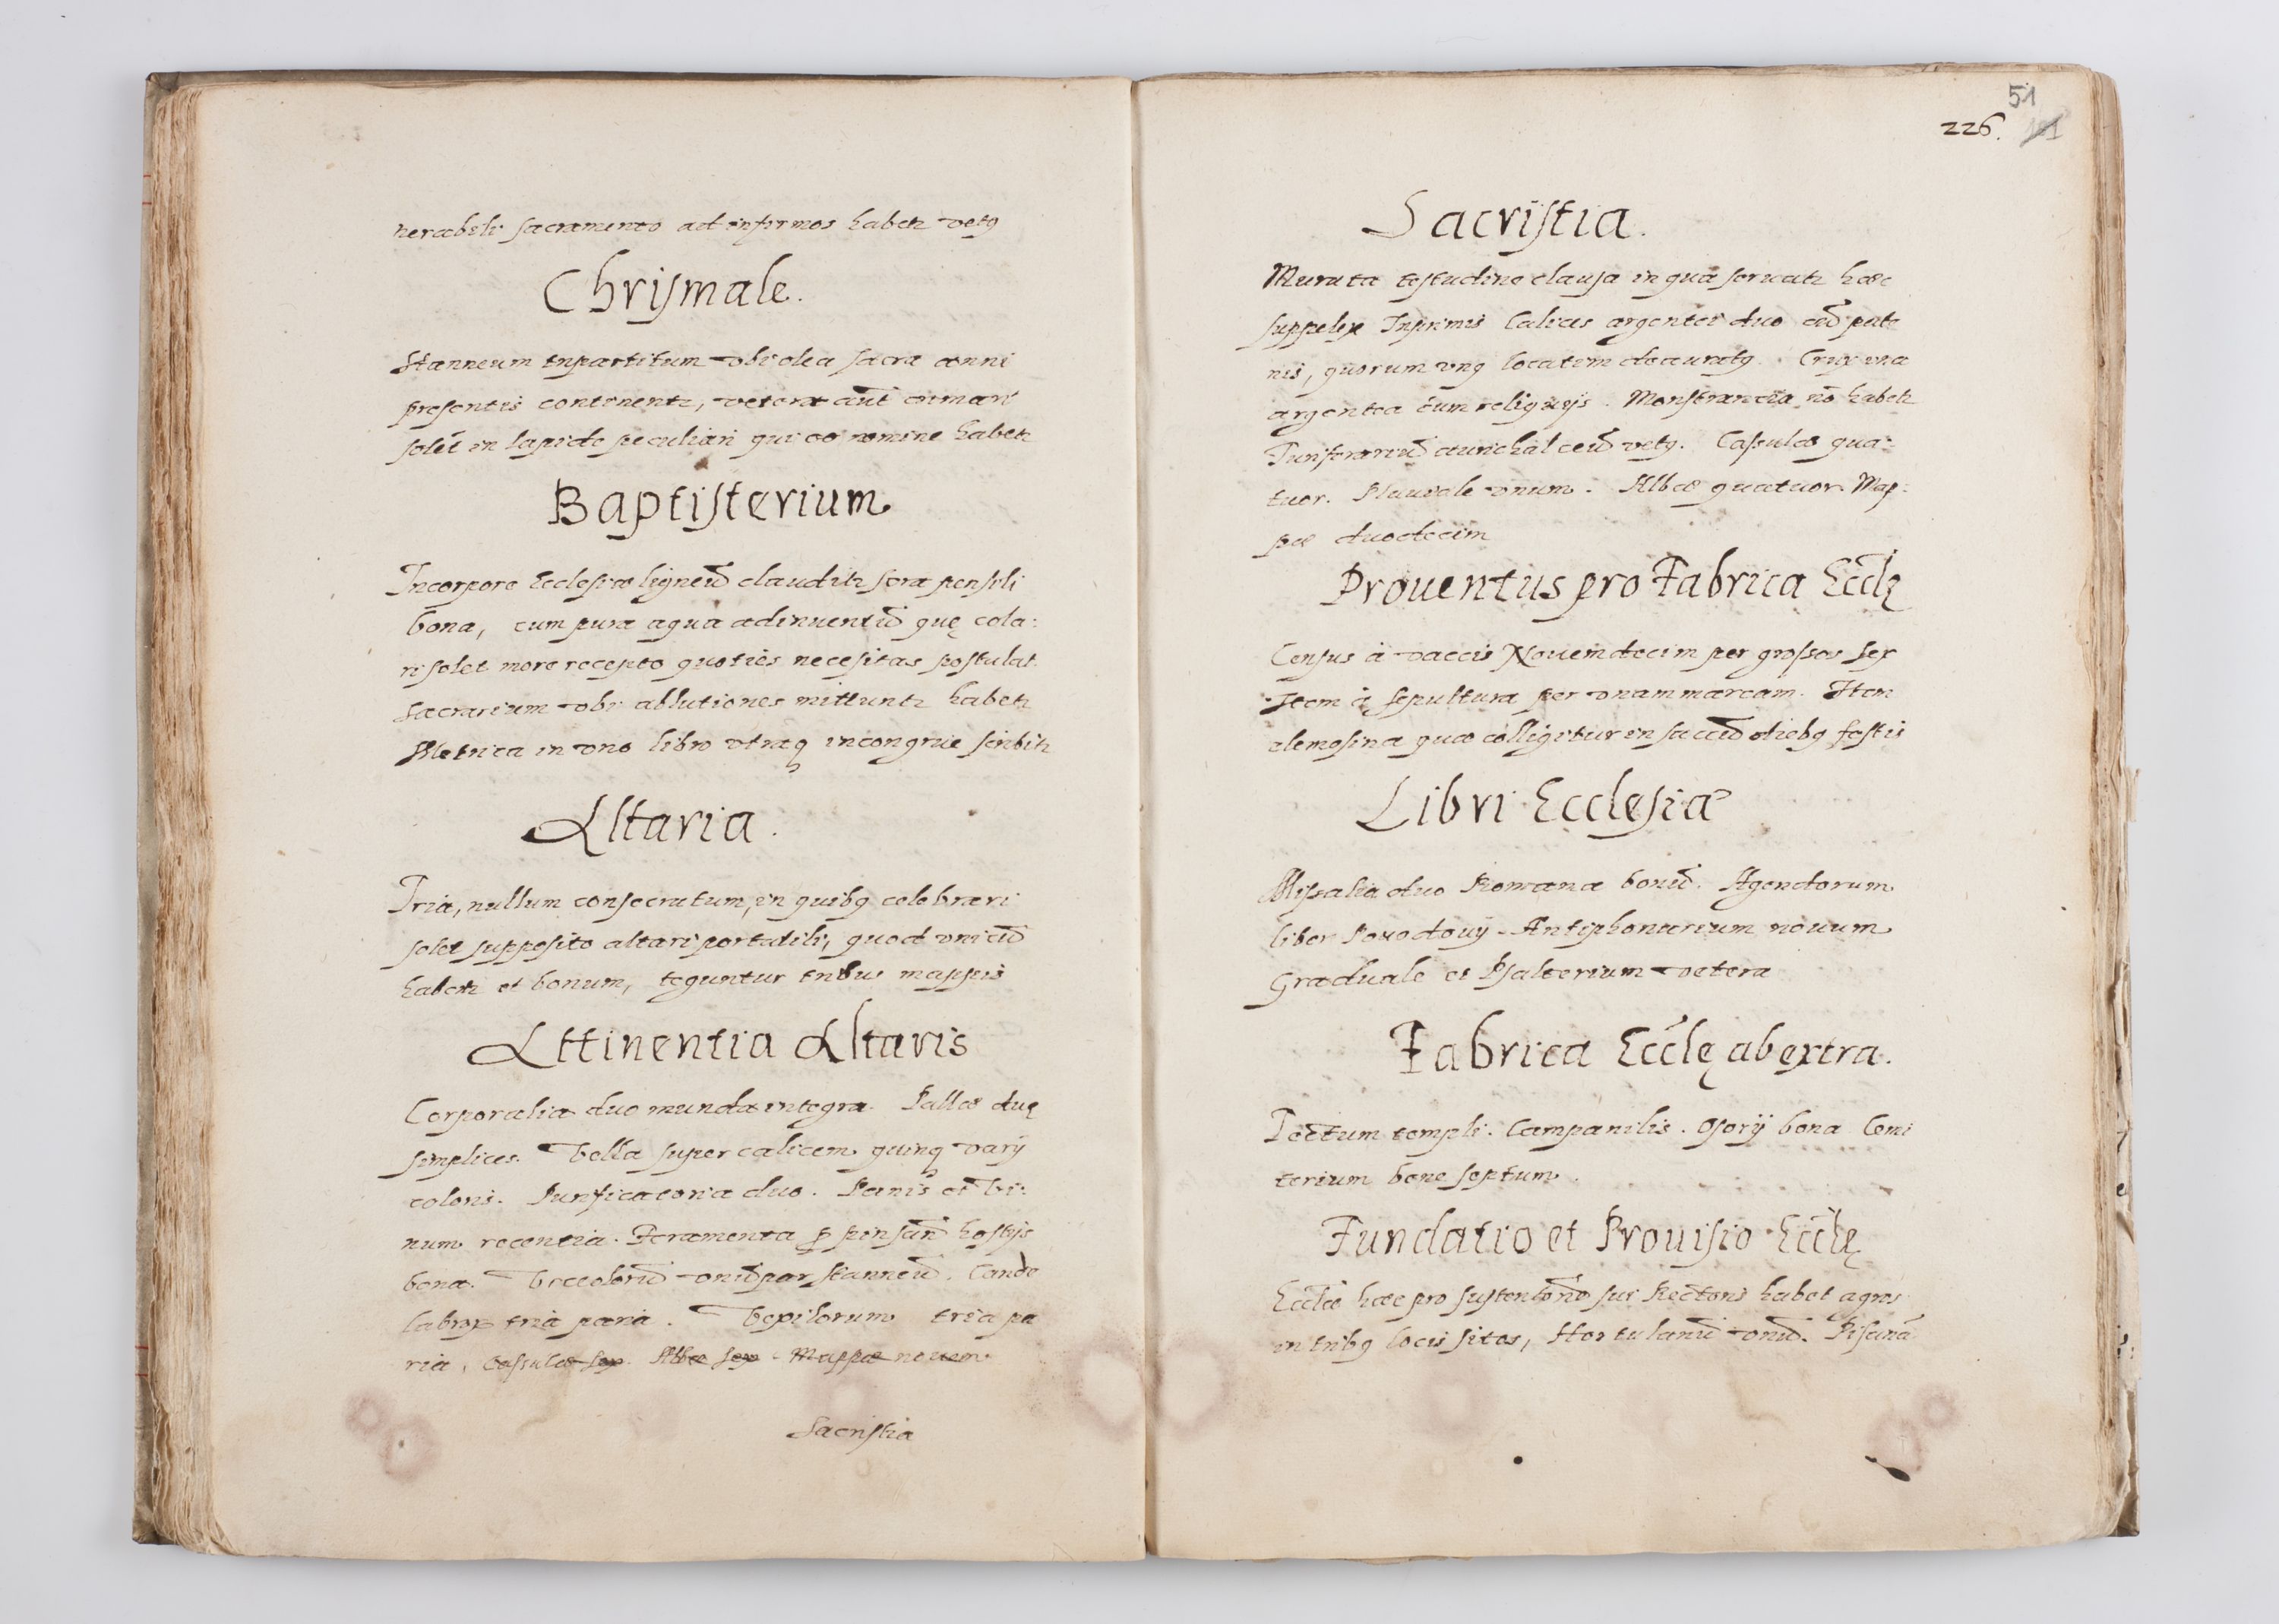 nerabili sacramento ad infirmos habetr vetꝯ
Chrismale.
Stanneum tripartitum vbi olea sacra anni
presentis continentr, vetera aūt cremari
solēt in lapide peculiari qui eo nomine habetr
Baptisterium
In corpore Ecclesiæ ligneū clauditr sera pensili
bona, cum pura aqua adinuentū quę cola:
ri solet more recepto quoties necesitas postulat.
Sacrarium vbi ablutiones mittuntr habetr
Metrica in vno libro vtraq incongrue scribitr
Altaria.
Tria, nullum consecratum, in quibꝯ celebrari
solet supposito altari portatili, quod vnicū
habetr et bonum, teguntur tribus mappis
Attinentia Altaris
Corporalia duo munda integra. Pallæ duę
simplices. Vella super calicem quinq varÿ
coloris. Purificatoria duo. Panis et Vi:
num recentia. Feramenta ꝓ pinsān hostÿs
bona. Vrceolorū vnū par stanneū. Cande
labrorꝝ tria paria. Vexilorum tria pa
ria, Casulæ sex. Albæ sex. Mappæ nouem
Sacristia
51
226. 101
Sacristia.
Murata testudine clausa in qua seruatr hæc
suppelex Inprimis Calices argentei duo cū pate
nis, quorum vnꝯ localem deauratꝯ. Crux vna
argentea cum reliquÿs. Monstrancia nō habetr
Turiferariū aurichalceū vetꝯ. Casulæ qua:
tuor. Pluuiale vnum. Albæ quatuor. Map:
pæ duodecim
Prouentus pro Fabrica Eccłę
Census à vaccis Nouemdecim per grossos sex
Item à sepultura per vnam marcam. Item
elemosina quæ colligitur in saccū diebꝯ festis
Libri Ecclesiæ
Missalia duo Romana bona. Agendorum
liber Powodowÿ. Antiphonarium nouum
Graduale et Psalterium vetera
Fabrica Eccłę ab extra.
Tectum templi. Campanilis. Osorÿ bona Cemi
terium bene septum.
Fundatio et Prouisio Eccłę
Eccłæ hæc pro sustentōne sui Rectoris habet agros
in tribꝯ locis sitos, Hortulanū vnū. Piscinā